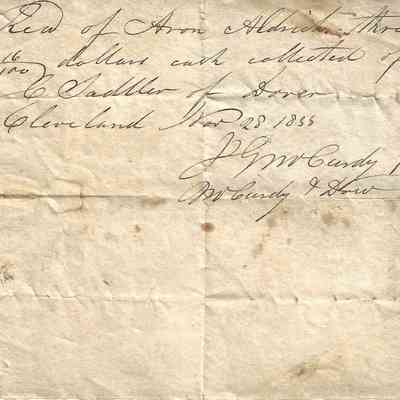 Recd of Aron Aldrich thre
16/100 dollars cash collected of
C Saddler of Dover
Cleveland Nov 28 1855
J G McCurdy
McCurdy & Dow